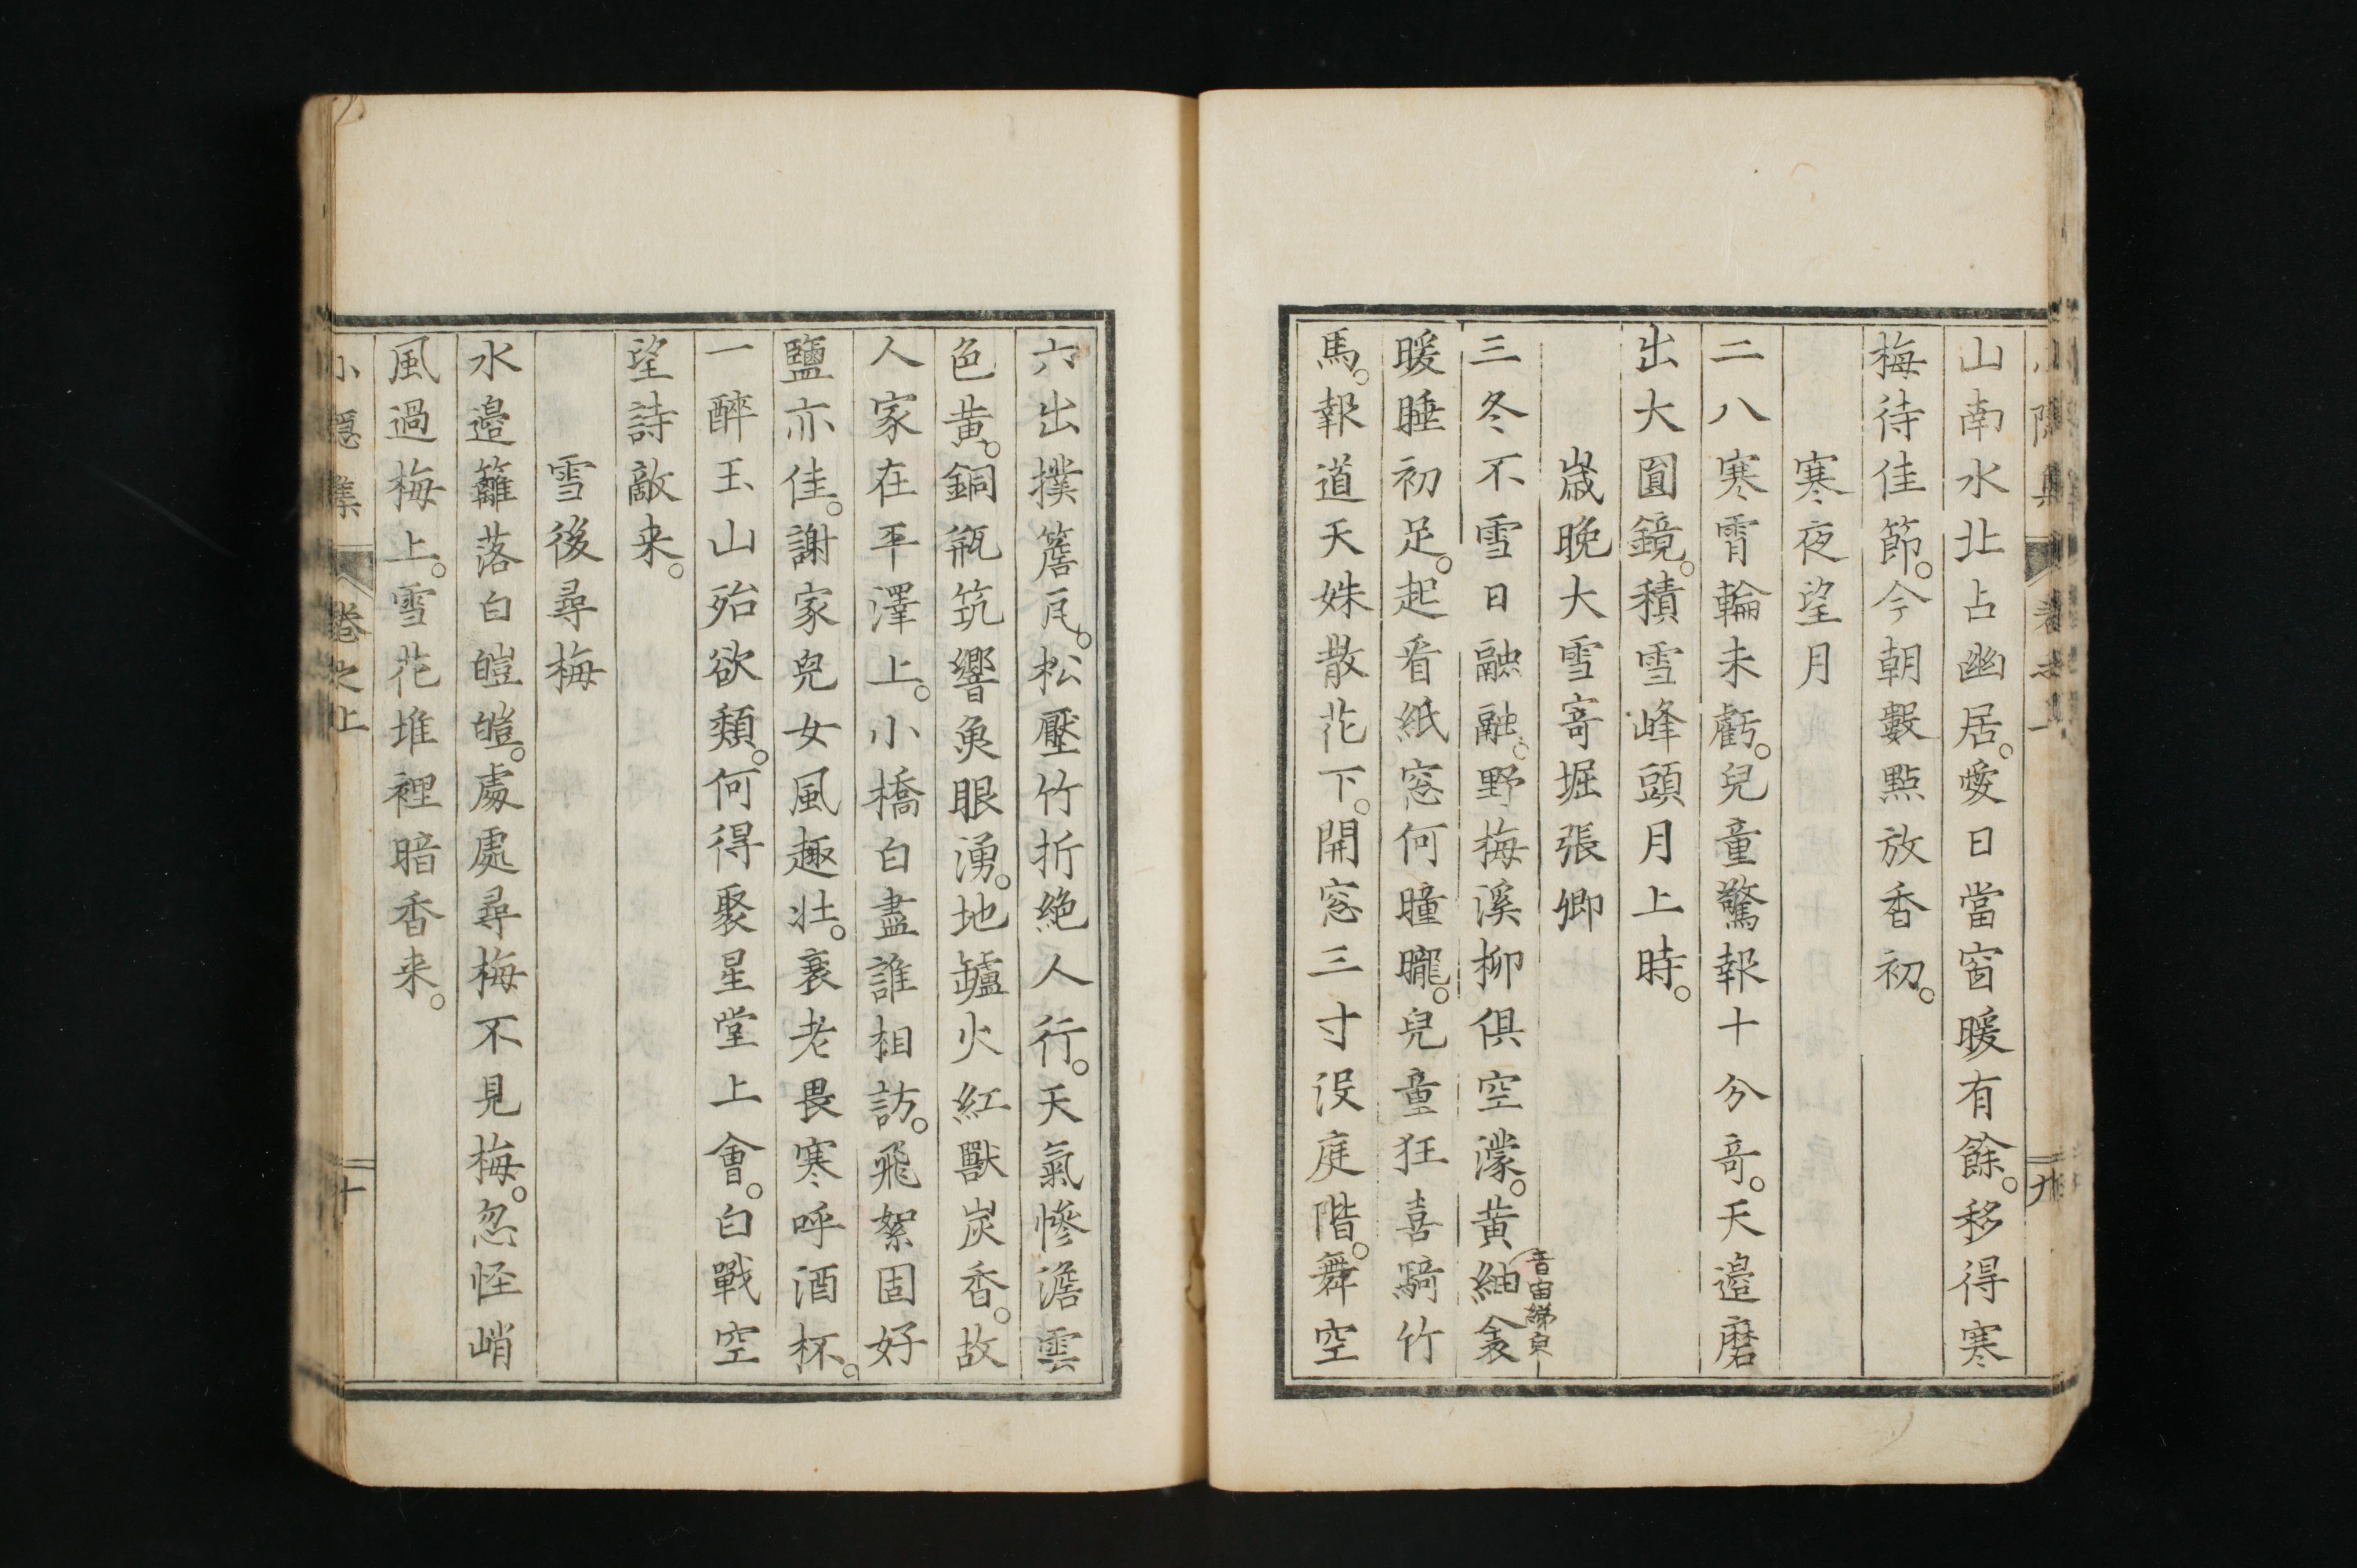 山南水北占幽居。愛日當窗暖有餘。移得寒
梅待佳節。今朝數點放香初。
寒夜望月
二八寒霄輪未虧。兒童驚報十分奇。天邉磨
出大圓鏡。積雪峰頭月上時。
歲晚大雪寄堀張卿
三冬不雪日融融。野梅溪柳俱空濛。黄紬衾
暖睡初足。起看紙窓何曈曨。兒童狂喜騎竹
馬。報道天姝散花下。開窓三寸没庭階。舞空
六出撲簷瓦。松壓竹折絶人行。天氣慘澹雲
色黄。銅瓶筑響魚眼湧。地鑪火紅獸炭香。故
人家在平澤上。小橋白盡誰相訪。飛絮固好
鹽亦佳。謝家兒女風趣壯。衰老畏寒呼酒杯。
一醉玉山殆欲頽。何得聚星堂上會。白戰空
望詩敵来。
雪後尋梅
水邉籬落白皚皚。處處尋梅不見梅。忽怪峭
風過梅上。雪花堆裡暗香来。
小隱集 卷之上 十